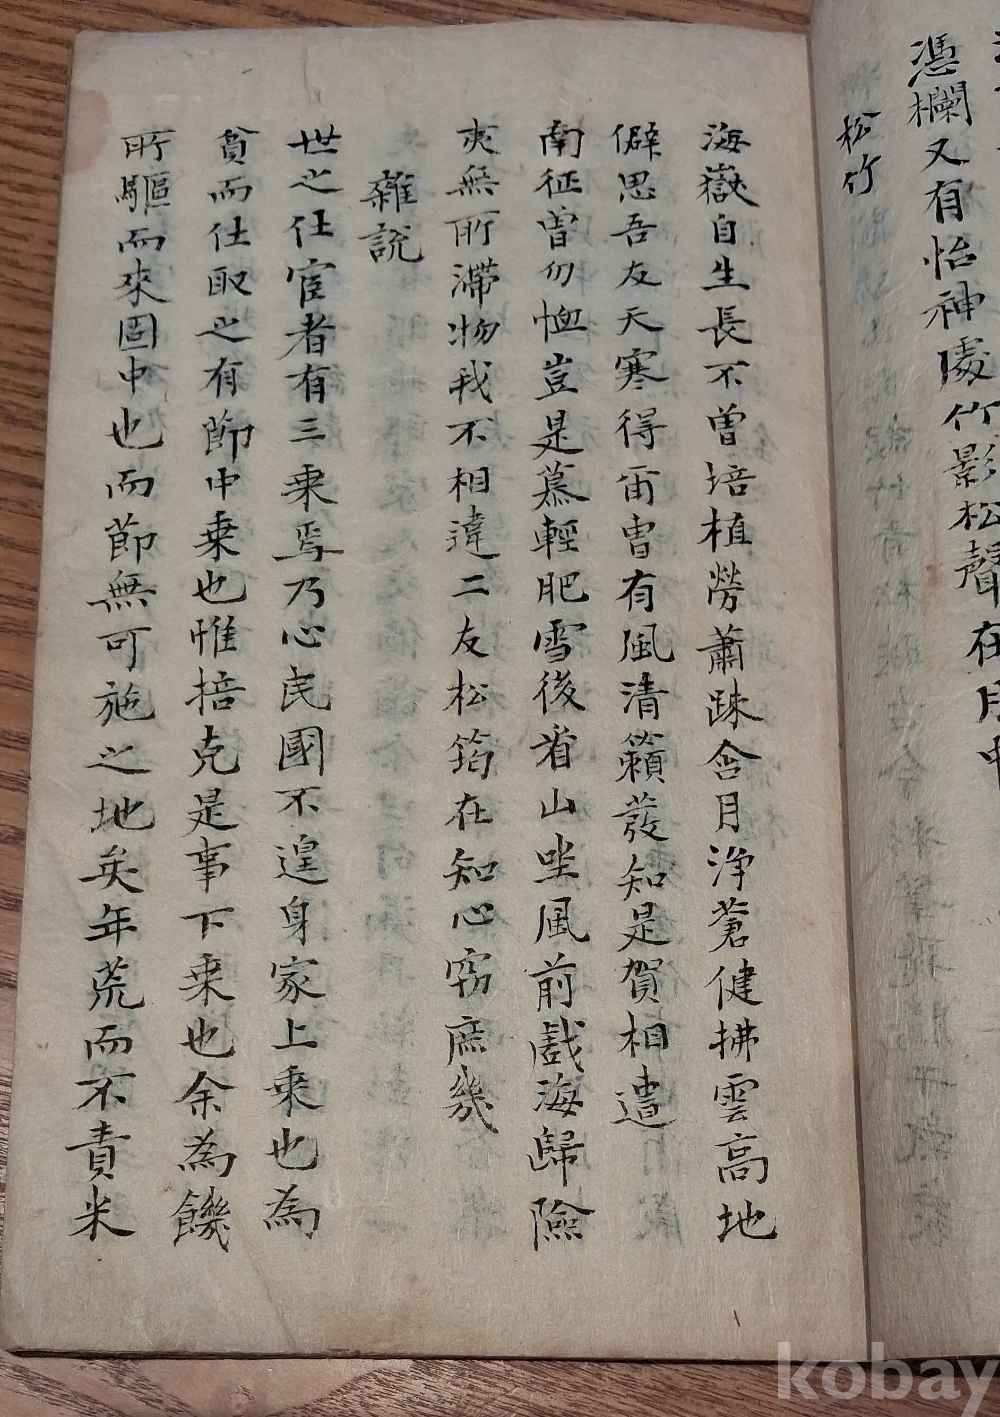 憑欄又有怡神處竹影松聲在月中
松竹
海嶽自生長不曾培植勞蕭踈含月淨蒼健拂雲高地
僻思吾友天寒得甯曺有風清籟發知是賀相遭
南征曾勿恤豈是慕輕肥雪後看山坐風前戱海歸險
夷無所滯物我不相違二友松筠在知心窃庶幾
雜說
世之仕宦者有三乗焉乃心民國不遑身家上乗也為
貧而仕取之有節中乗也惟掊克是事下乗也余為饑
所驅而來固中也而節無可施之地矣年荒而不責米
kobay